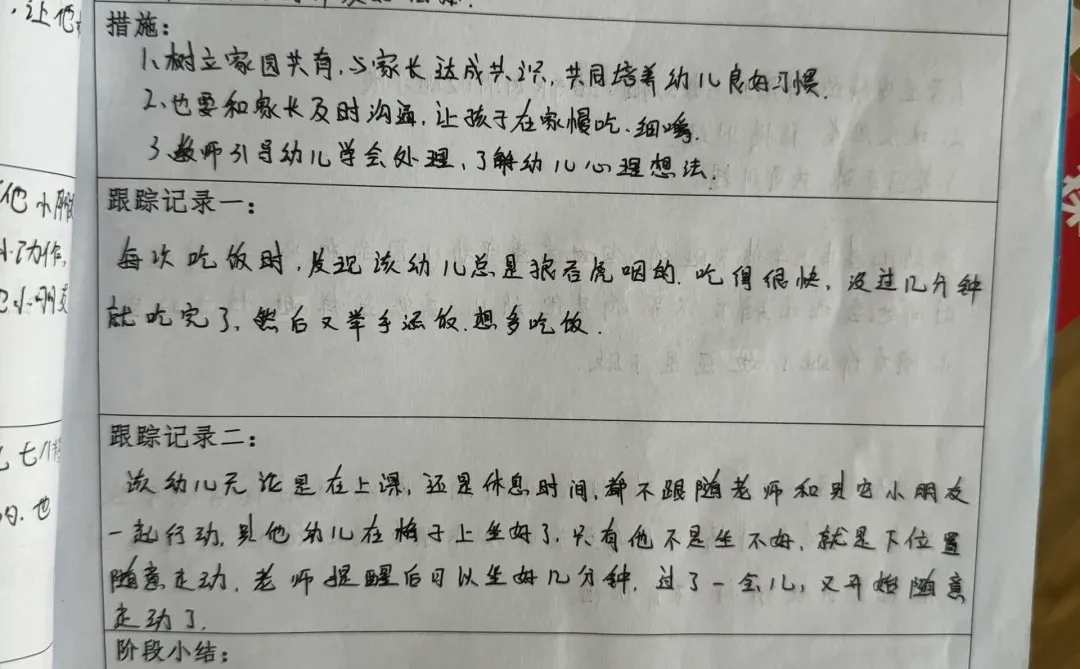 让他
措施：
1、树立家园共育，与家长达成共识，共同培养幼儿良好习惯．
2、也要和家长及时沟通，让孩子在家慢吃、细嚼．
3、教师引导幼儿学会处理，了解幼儿心理想法．
他小朋
跟踪记录一：
小动作，
每次吃饭时，发现该幼儿总是狼吞虎咽的．吃得很快，没过几分钟
小朋友
就吃完了，然后又举手添饭．想多吃饭．
跟踪记录二：
该幼儿无论是在上课，还是休息时间，都不跟随老师和其它小朋友
也
一起行动．其他幼儿在椅子上坐好了．只有他不是坐不好，就是下位置
随意走动．老师提醒后可以坐好几分钟．过了一会儿，又开始随意
走动了．
阶段小结：